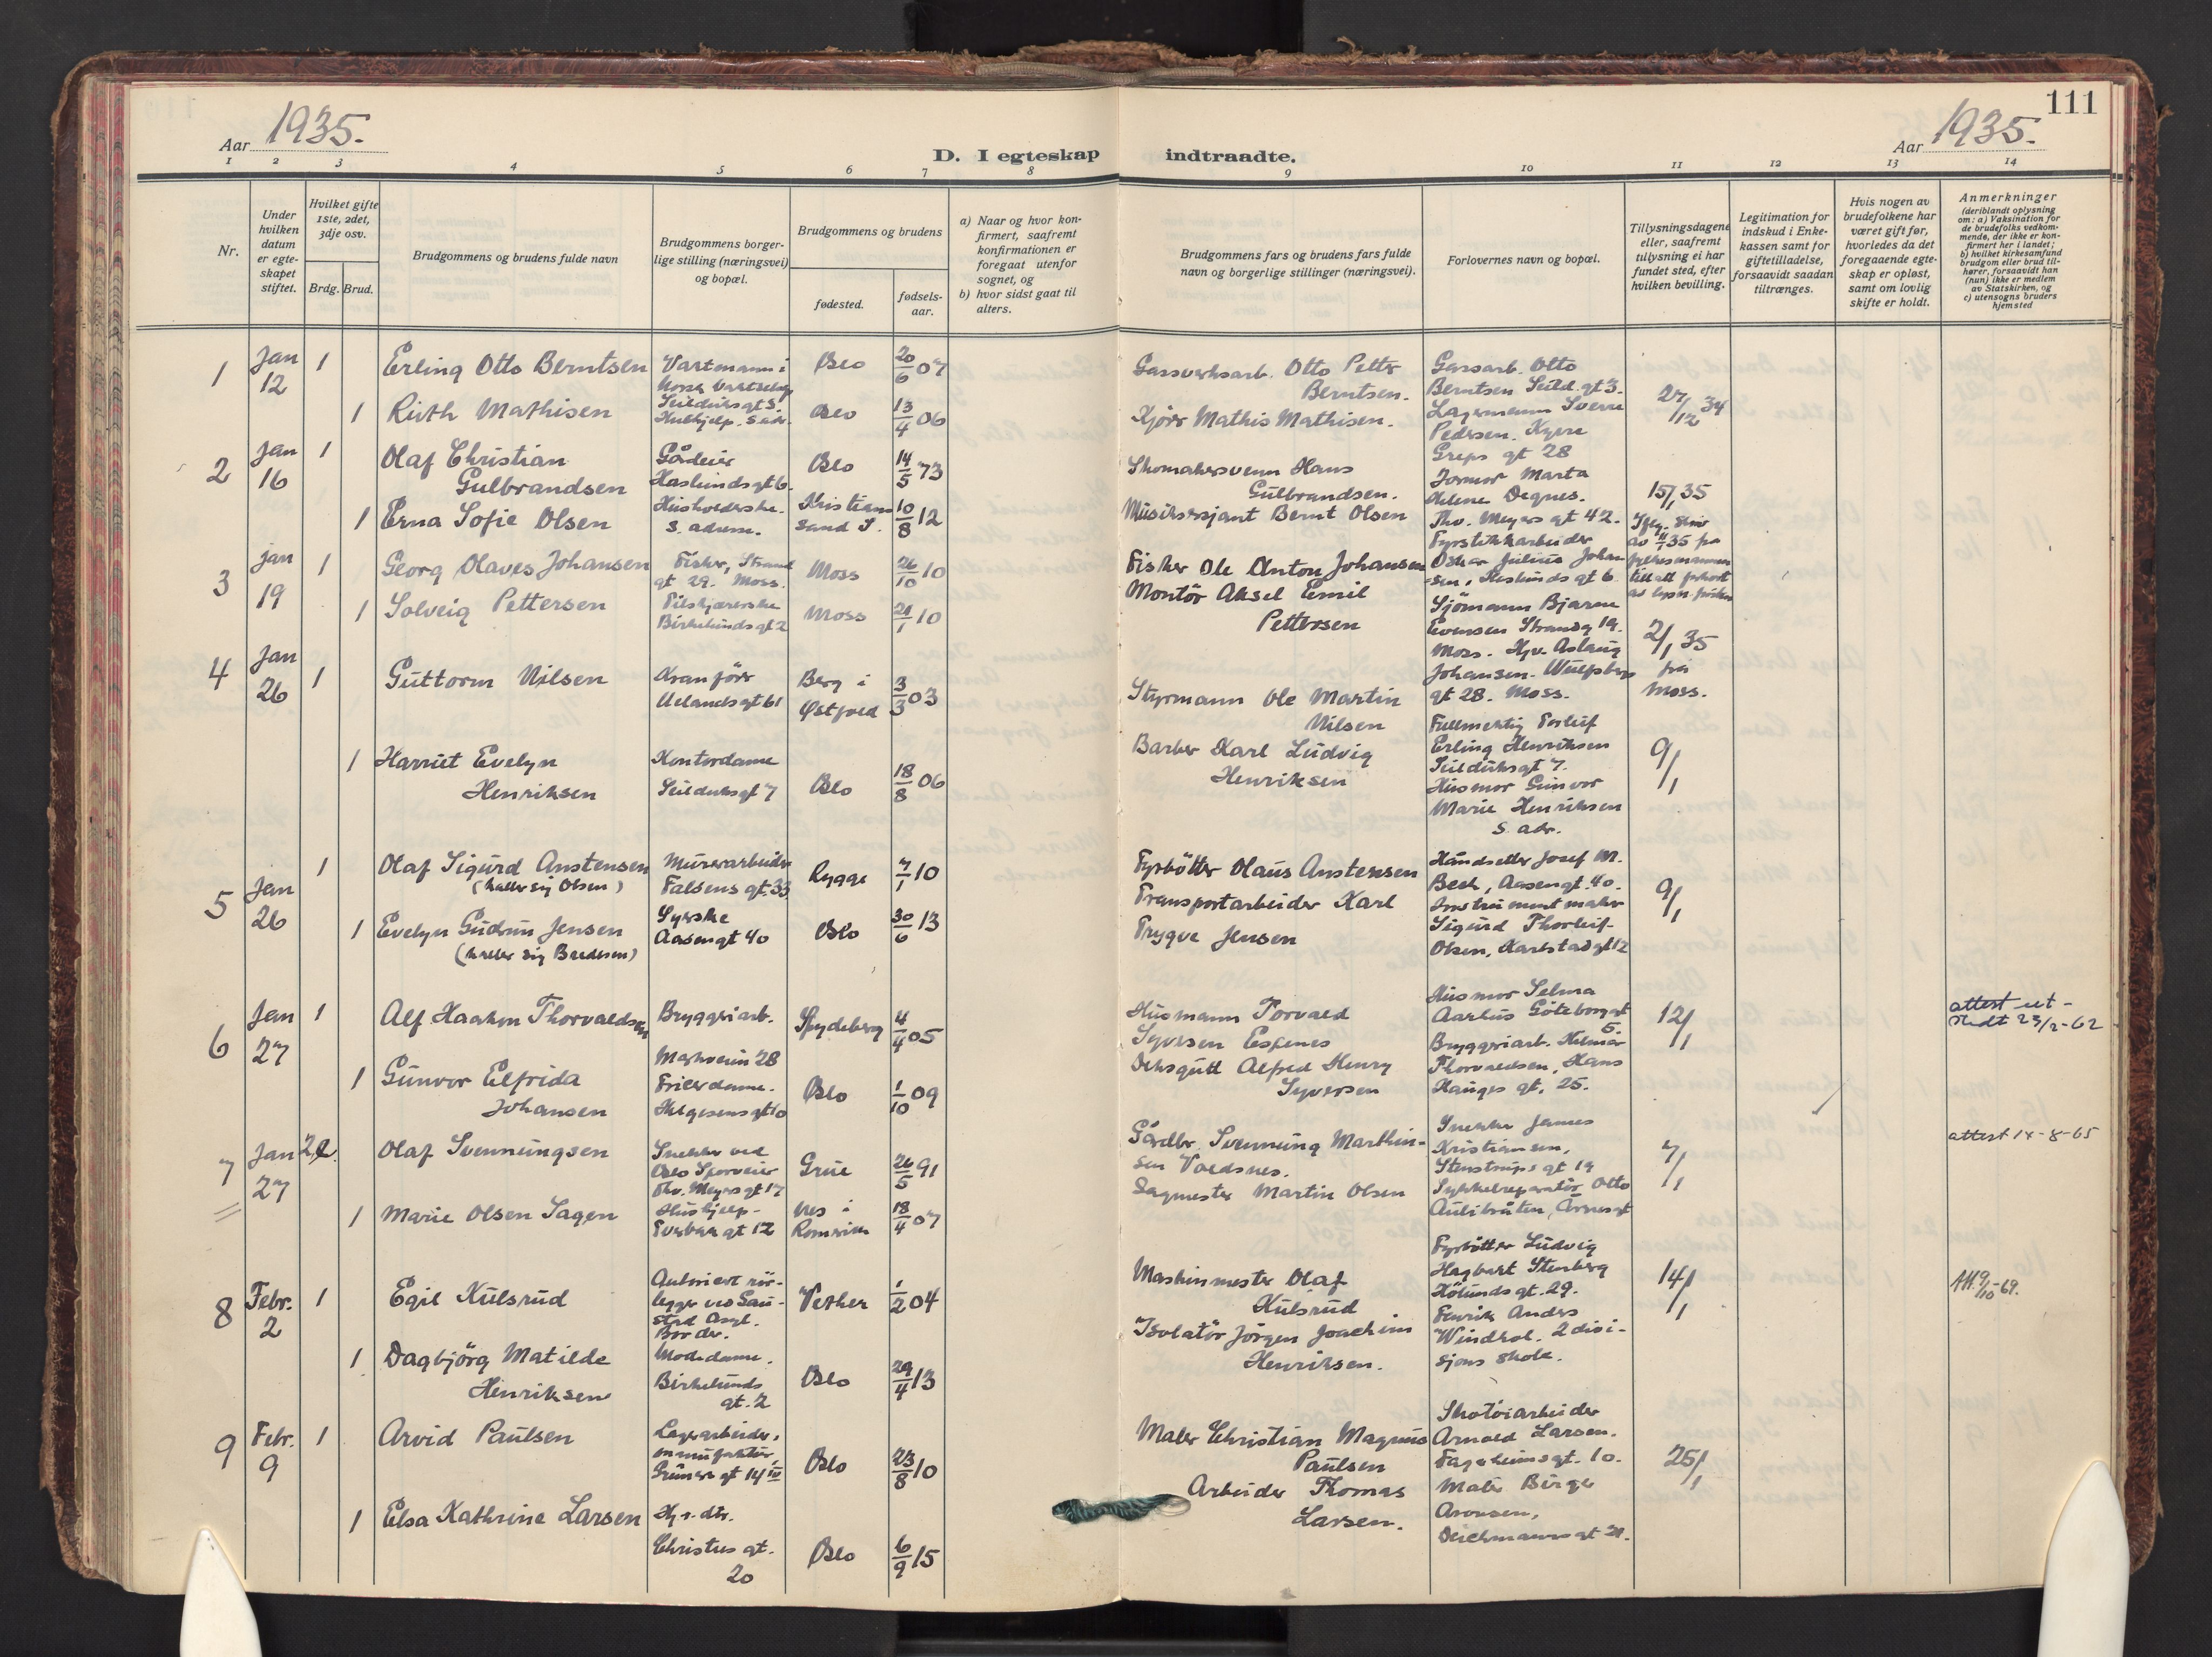 111
Aar 1935.
D. I egteskap indtraadte.
Aar 1935.
1 2 3 4 5 6 7 8 9 10 11 12 13 14
Nr.
Under hvilken datum er egteskapet stiftet.
Hvilket gifte 1ste, 2det, 3dje osv.
Brdg. Brud.
Brudgommens og brudens fulde navn
Brudgommens borgerlige stilling (næringsvei) og bopæl.
Brudgommens og brudens
fødested.
fødselsaar.
a) Naar og hvor konfirmert, saafremt konfirmationen er foregaat utenfor sognet, og
b) hvor sidst gaat til alters.
Brudgommens fars og brudens fars fulde navn og borgerlige stillinger (næringsvei).
Forlovernes navn og bopæl.
Tillysningsdagene eller, saafremt tillysning ei har fundet sted, efter hvilken bevilling.
Legitimation for indskud i Enkekassen samt for giftetilladelse, forsaavidt saadan tiltrænges.
Hvis nogen av brudefolkene har været gift før, hvorledes da det foregaaende egteskap er opløst, samt om lovlig skifte er holdt.
Anmerkninger
(deriblandt oplysning om: a) Vaksination for de brudefolks vedkommende, der ikke er konfirmert her i landet; b) hvilket kirkesamfund brudgom eller brud tilhører, forsaavidt han (hun) ikke er medlem av Statskirken, og c) utensogns bruders hjemsted
1 Jan 12 1 Erling Otto Berntsen
Vartmann i
Oslo 20/6 07
Gassverksarb. Otto Petter
Berntsen.
Gassarb. Otto
Berntsen Seild. gt 3.
27/12 34
1 Ruth Mathisen
Seilduksgt 5
Hushjelp. S. adr.
Oslo 13/4 06
Kjører Mathis Mathisen.
Lagermann Sverre
Pedersen.
Greps gt 28
2 Jan 16 1 Olaf Christian
Gulbrandsen
Gårdeier
Haslunds gt 6.
Oslo 14/5 73
Skomakersvenn Hans
Gulbrandsen.
Jormor Marta
Helene Degnes.
Thv. Meyers gt 42.
15/1 35
1 Erna Sofie Olsen
Husholderske.
S. adresse.
Kristiansand S. 10/8 12
Musikersjant Bernt Olsen
Fyrstikkarbeider
Oskar Julius Johansen, Haslunds gt 6
3 Jan 19 1 Georg Olaves Johansen
Fisker, Strand
gt 29. Moss.
Moss 26/10 10
Fisker Ole Anton Johansen
Sjömann Bjarne
Evensen Strandg 19.
Moss. Hjv. Aslaug
Johansen. Wulfsbergs
gt 28. Moss.
2/1 35
fra
Moss.
1 Solveig Pettersen
Birkelunds gt 2
Moss 21/1 10
Montör Aksel Emil
Pettersen
4 Jan 26 1 Guttorm Nilsen
Kranförer
Uelands gt 61
Berg i
Østfold 3/3 03
Styrmann Ole Martin
Nilsen
Fullmektig Torleif
Erling Henriksen
Seilduksgt 7.
9/1
1 Harriet Evelyn
Henriksen
Kontordame
Seilduksgt 7
Oslo 18/8 06
Barber Karl Ludvig
Henriksen
Husmor Gunvor
Marie Henriksen
s. adr.
5 Jan 26 1 Olaf Sigurd Anstensen
(kaller sig Olsen)
Murerarbeider
Falsens gt. 33
Rygge 7/1 10
Fyrbötter Olaus Anstensen
Håndsetter Josef M.
Beck, Aasengt. 40.
9/1
1 Evelyn Gudrun Jensen
(kaller sig Bredesen)
Syerske
Aasengt 40
Oslo 30/6 13
Transportarbeider Karl
Trygve Jensen
Instrumentmaker
Sigurd Thorleif
Olsen, Karlstadgt 12
6 Jan 27 1 Alf Haakon Thorvaldsen
Bryggeriarb.
Markveien 28
Spydeberg 4/4 05
Husmann Torvald
Syversen Espenes
Husmor Selma
Aarhus Göteborggt
5.
12/1
attest utstedt 23/2-62
1 Gunvor Elfrida
Johansen
Helgesens gt 10
Oslo 1/10 09
Alfred Henry
Syversen
Bryggeriarb. Hilmar
Thorvaldsen, Hans
Hauges gt. 25.
7 Jan 27 2 Olaf Svennungsen
Snekker ved
Oslo Sporveier
Thv. Meyers gt 17
Grue 26/5 91
Gårdbr. Svennung Marthinsen Voldsnes.
Snekker James
Kristiansen,
Stenstrups gt 19
7/1
attest 14-8-65
1 Marie Olsen Sagen
Hushjelp
Tverbak gt 12
Nes i
Romerike 18/4 07
Sagmester Martin Olsen
Sykkelreparatör Otto
Aulibråten,
8 Febr. 2 1 Egil Kulsrud
Autorisert rörlegger ved Gaustad Asyl.
Bor der.
Vether 1/2 04
Maskinmester Olaf
Kulsrud
Fyrbötter Ludvig
Hagbart Stenberg
Hölunds gt. 29.
14/1
Att 9/10-69.
1 Dagbjörg Matilde
Henriksen
Modedame.
Birkelunds
gt. 2
Oslo 29/4 13
Isolatör Jörgen Joachim
Henriksen.
Fenrik Anders
Windhol. 2 divisjons skole.
9 Febr. 9 1 Arvid Paulsen
Lagerarbeider,
Grüners gt 14 III
Oslo 23/8 10
Maler Christian Magnus
Paulsen
Skotöiarbeider
Arnold Larsen.
Fagerheimsgt. 10.
25/1
1 Elsa Kathrine Larsen
Hj. dtr.
Christies gt.
20
Oslo 6/9 15
Arbeider Thomas
Larsen.
Maler Birger
Aronsen,
Deichmanns gt 21.